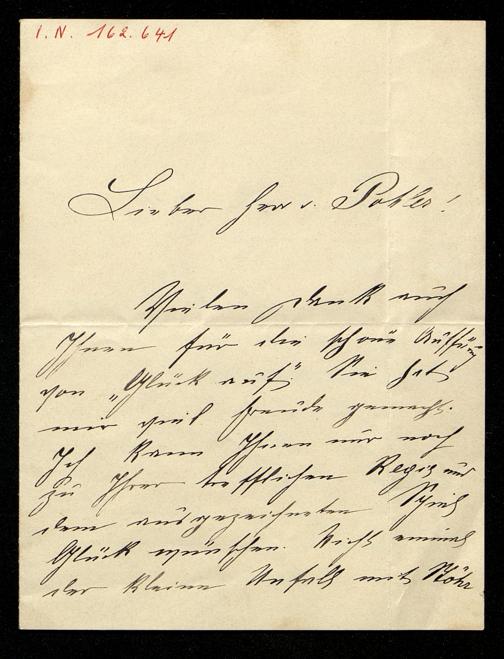 I. N. 162.641
Lieber Herr v. Pohler!
Vielen Dank auch
Ihnen für die schöne Aufführung
von „Glück auf“ Sie hat
mir viel Freude gemacht.
Ich kann Ihnen nur noch
zu Ihrer trefflichen Regie und
dem ausgezeichneten Spiel
Glück wünschen. Nicht einmal
der kleine Unfall mit